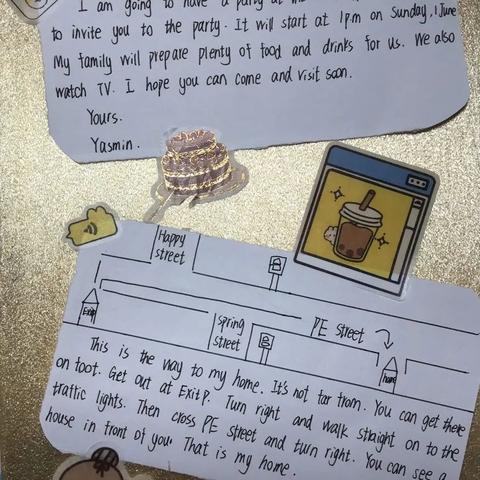 I am going to have a party at
to invite you to the party. It will start at 1pm on Sunday, 1 June
My family will prepare plenty of food and drinks for us. We also
watch TV. I hope you can come and visit soon.
Yours.
Yasmin.
Happy
street
B
Exit P
spring
street
B
PE street
home
This is the way to my home. It's not far from. You can get there
on foot. Get out at Exit P. Turn right and walk straight on to the
traffic lights. Then cross PE street and turn right. You can see a
house in front of you. That is my home.